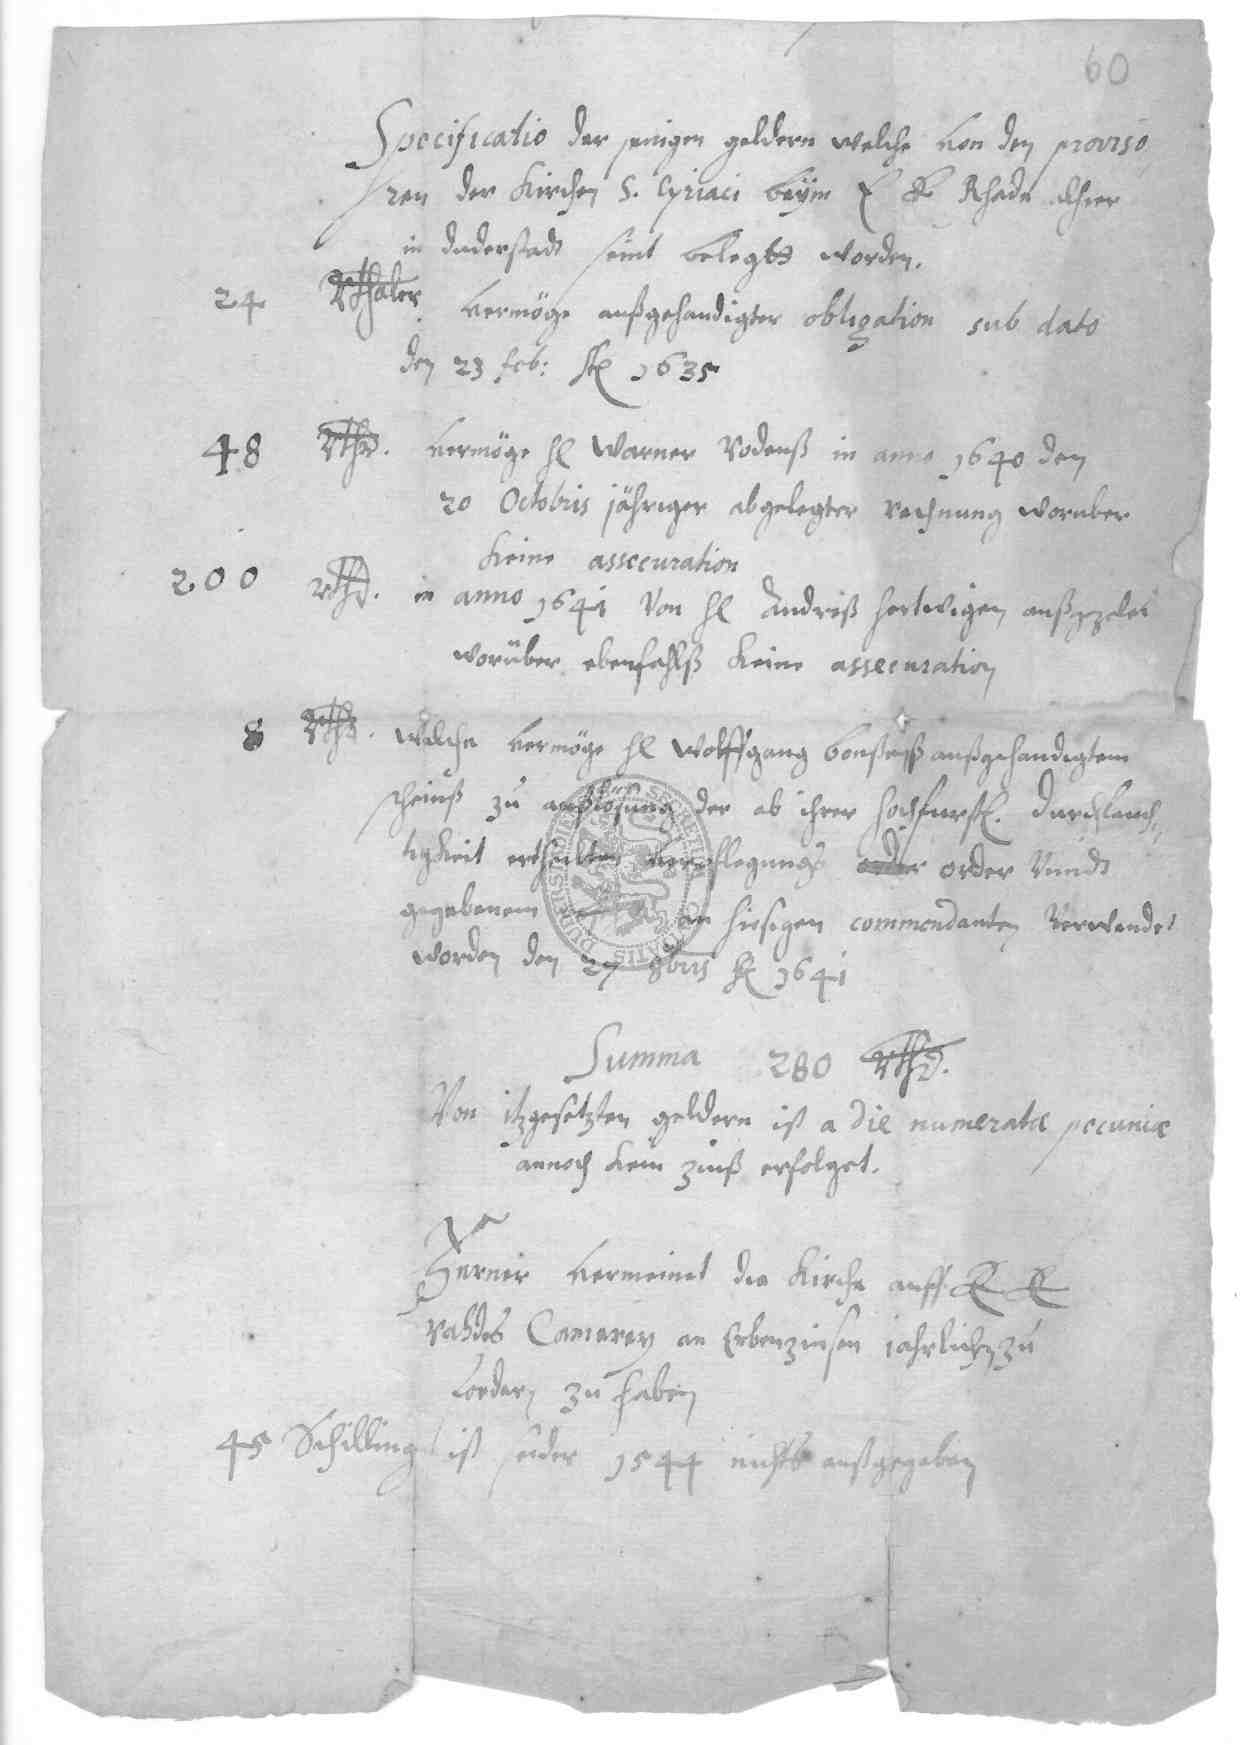 60
Specificatio der jenigen geldern welche von den proviso
ren der Kirchen S. Cyriaci beÿm E E Rhade alhier
in Duderstadt seint belegtt worden.
24 Rthaler vermöge außgehandigter obligation sub dato
den 23 feb: 1635
48 Rthd. vermöge hl Warner Rodenß in anno 1640 den
20 Octobris jähriger abgelegter rechnung woruber
keine assecuration
200 rthd. in anno 1641 Von hl Andriß hertwigen
worüber ebenfahlß keine assecuration
8 Rthd. welche vermöge hl Wolffgang außgehandigtem
scheinß zu außlösung der ab ihrer hochfurstl. Durchlauch
tigkeit erthulten verpflegungs order Vundt
gegebenem an hiesigen commendanten Verwendet
worden den 27 8bris 1641
Summa 280 Rthd.
Von itzgesetzten geldern ist a die numeratæ pecuniæ
annoch kein zinß erfolget.
Ferner vermeinet die Kirche auff E E
rahdes Camerey an Erbenzinsen jahrlichen zu
fordern zu haben
45 Schilling ist sider 1544 nichts außgegeben